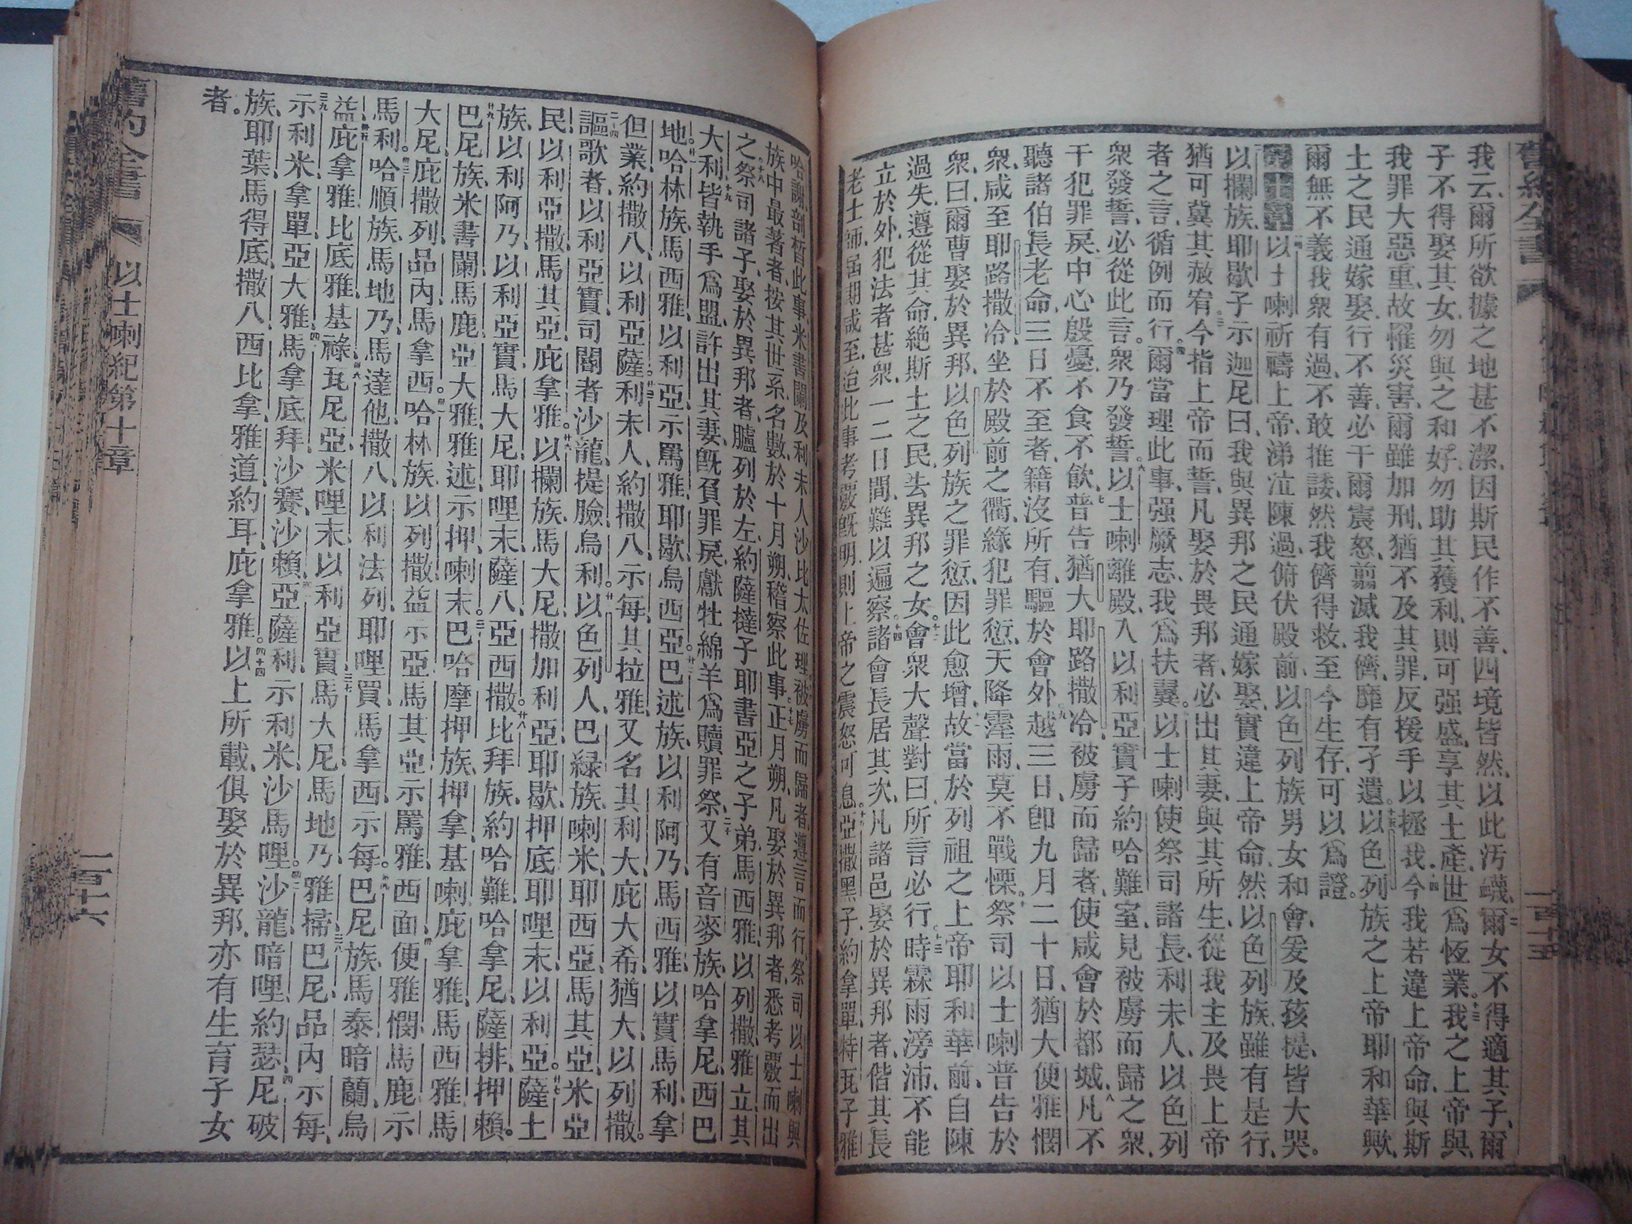 我云爾所欲據之地甚不潔因斯民作不善四境皆然以此汚衊爾女不得適其子爾
子不得娶其女勿與之和好勿助其獲利則可强盛享其土產世爲恆業我之上帝與
我罪大惡重故罹災害爾雖加刑猶不及其罪反援手以極我今我若違上帝命與斯
土之民通嫁娶行不善必干爾震怒翦滅我儕靡有孑遺以色列族之上帝耶和華歟
爾無不義我衆有過不敢推諉然我儕得救至今生存可以爲證
以士喇祈禱上帝涕泣陳過俯伏殿前以色列族男女和會爰及孩提皆大哭
以攔族耶歇子示迦尼曰我與異邦之民通嫁娶實違上帝命然以色列族雖有是行
猶可冀其赦宥今指上帝而誓凡娶於異邦者必出其妻與其所生從我主及畏上帝
者之言循例而行爾當理此事强厥志我爲扶翼以士喇使祭司諸長利未人以色列
衆發誓必從此言衆乃發誓以士喇離殿入以利亞實子約哈難室見被虜而歸之衆
干犯罪戾中心殷憂不食不飲普告猶大耶路撒冷被虜而歸者使咸會於都城凡不
聽諸伯長老命三日不至者籍沒所有驅於會外越三日卽九月二十日猶大便雅憫
衆咸至耶路撒冷坐於殿前之衢緣犯罪愆天降霪雨莫不戰慄祭司以士喇普告於
衆曰爾曹娶於異邦以色列族之罪愆因此愈增故當於列祖之上帝耶和華前自陳
過失遵從其命絶斯土之民去異邦之女會衆大聲對曰所言必行時霖雨滂沛不能
立於外犯法者甚衆一二日間難以遍察諸會長居其次凡諸邑娶於異邦者偕其長
老士師屆期咸至治此事考覈旣明則上帝之震怒可息亞撒黑子約拿單特瓦子雅
一百十五
哈謝剖晳此事米書闌及利未人沙比太佐理被虜而歸者遵言而行祭司以士喇與
族中最著者按其世系名數於十月朔稽察此事正月朔凡娶於異邦者悉考覈而出
之祭司諸子娶於異邦者臚列於左約薩撻子耶書亞之子弟馬西雅以列撒雅立其
大利皆執手爲盟許出其妻旣負罪戾獻牡綿羊爲贖罪祭又有音麥族哈拿尼西巴
地哈林族馬西雅以利亞示罵雅耶歇烏西亞巴述族以利阿乃馬西雅以實馬利拿
但業約撒八以利亞薩利未人約撒八示每其拉雅又名其利大庇大希猶大以列撒
謳歌者以利亞實司閽者沙龍提臉烏利以色列人巴綠族喇米耶西亞馬其亞米亞
民以利亞撒馬其亞庇拿雅以攔族馬大尼撒加利亞耶歇押底耶哩末以利亞薩土
族以利阿乃以利亞實馬大尼耶哩末薩八亞西撒比拜族約哈難哈拿尼薩排押賴
巴尼族米書闌馬鹿亞大雅雅述示押喇末巴哈摩押族押拿基喇庇拿雅馬西雅馬
大尼庇撒列品內馬拿西哈林族以列撒益示亞馬其亞示罵雅西面便雅憫馬鹿示
馬利哈順族馬地乃馬達他撒八以利法列耶哩買馬拿西示每巴尼族馬泰暗蘭烏
益庇拿雅比底雅基祿瓦尼亞米哩末以利亞實馬大尼馬地乃雅掃巴尼品內示每
示利米拿單亞大雅馬拿底拜沙賽沙賴亞薩利示利米沙馬哩沙龍暗哩約瑟尼破
族耶葉馬得底撒八西比拿雅道約耳庇拿雅以上所載俱娶於異邦亦有生育子女
者
以士喇紀第十章
一百十六